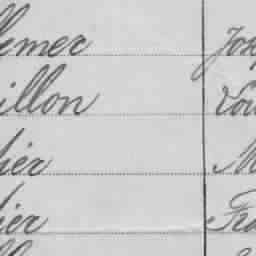 lemer Jos
illon Lou
hier M
hier Fra